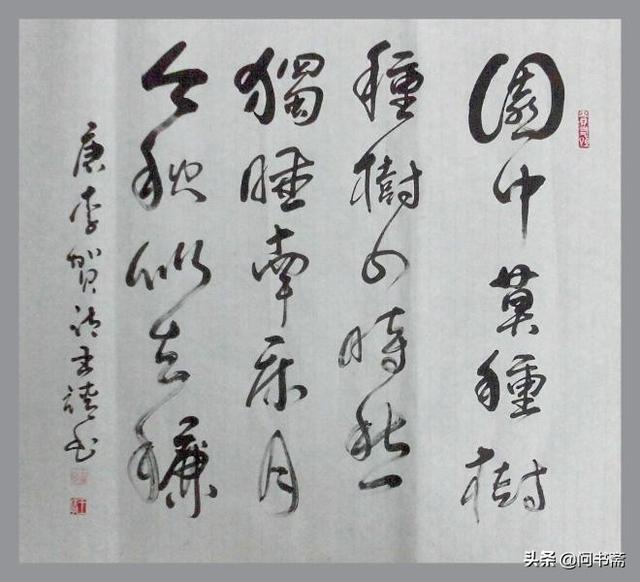 園中莫種樹
種樹四時愁
獨睡南床月
今秋似去
唐李賀詩 书
头条 @问书斋